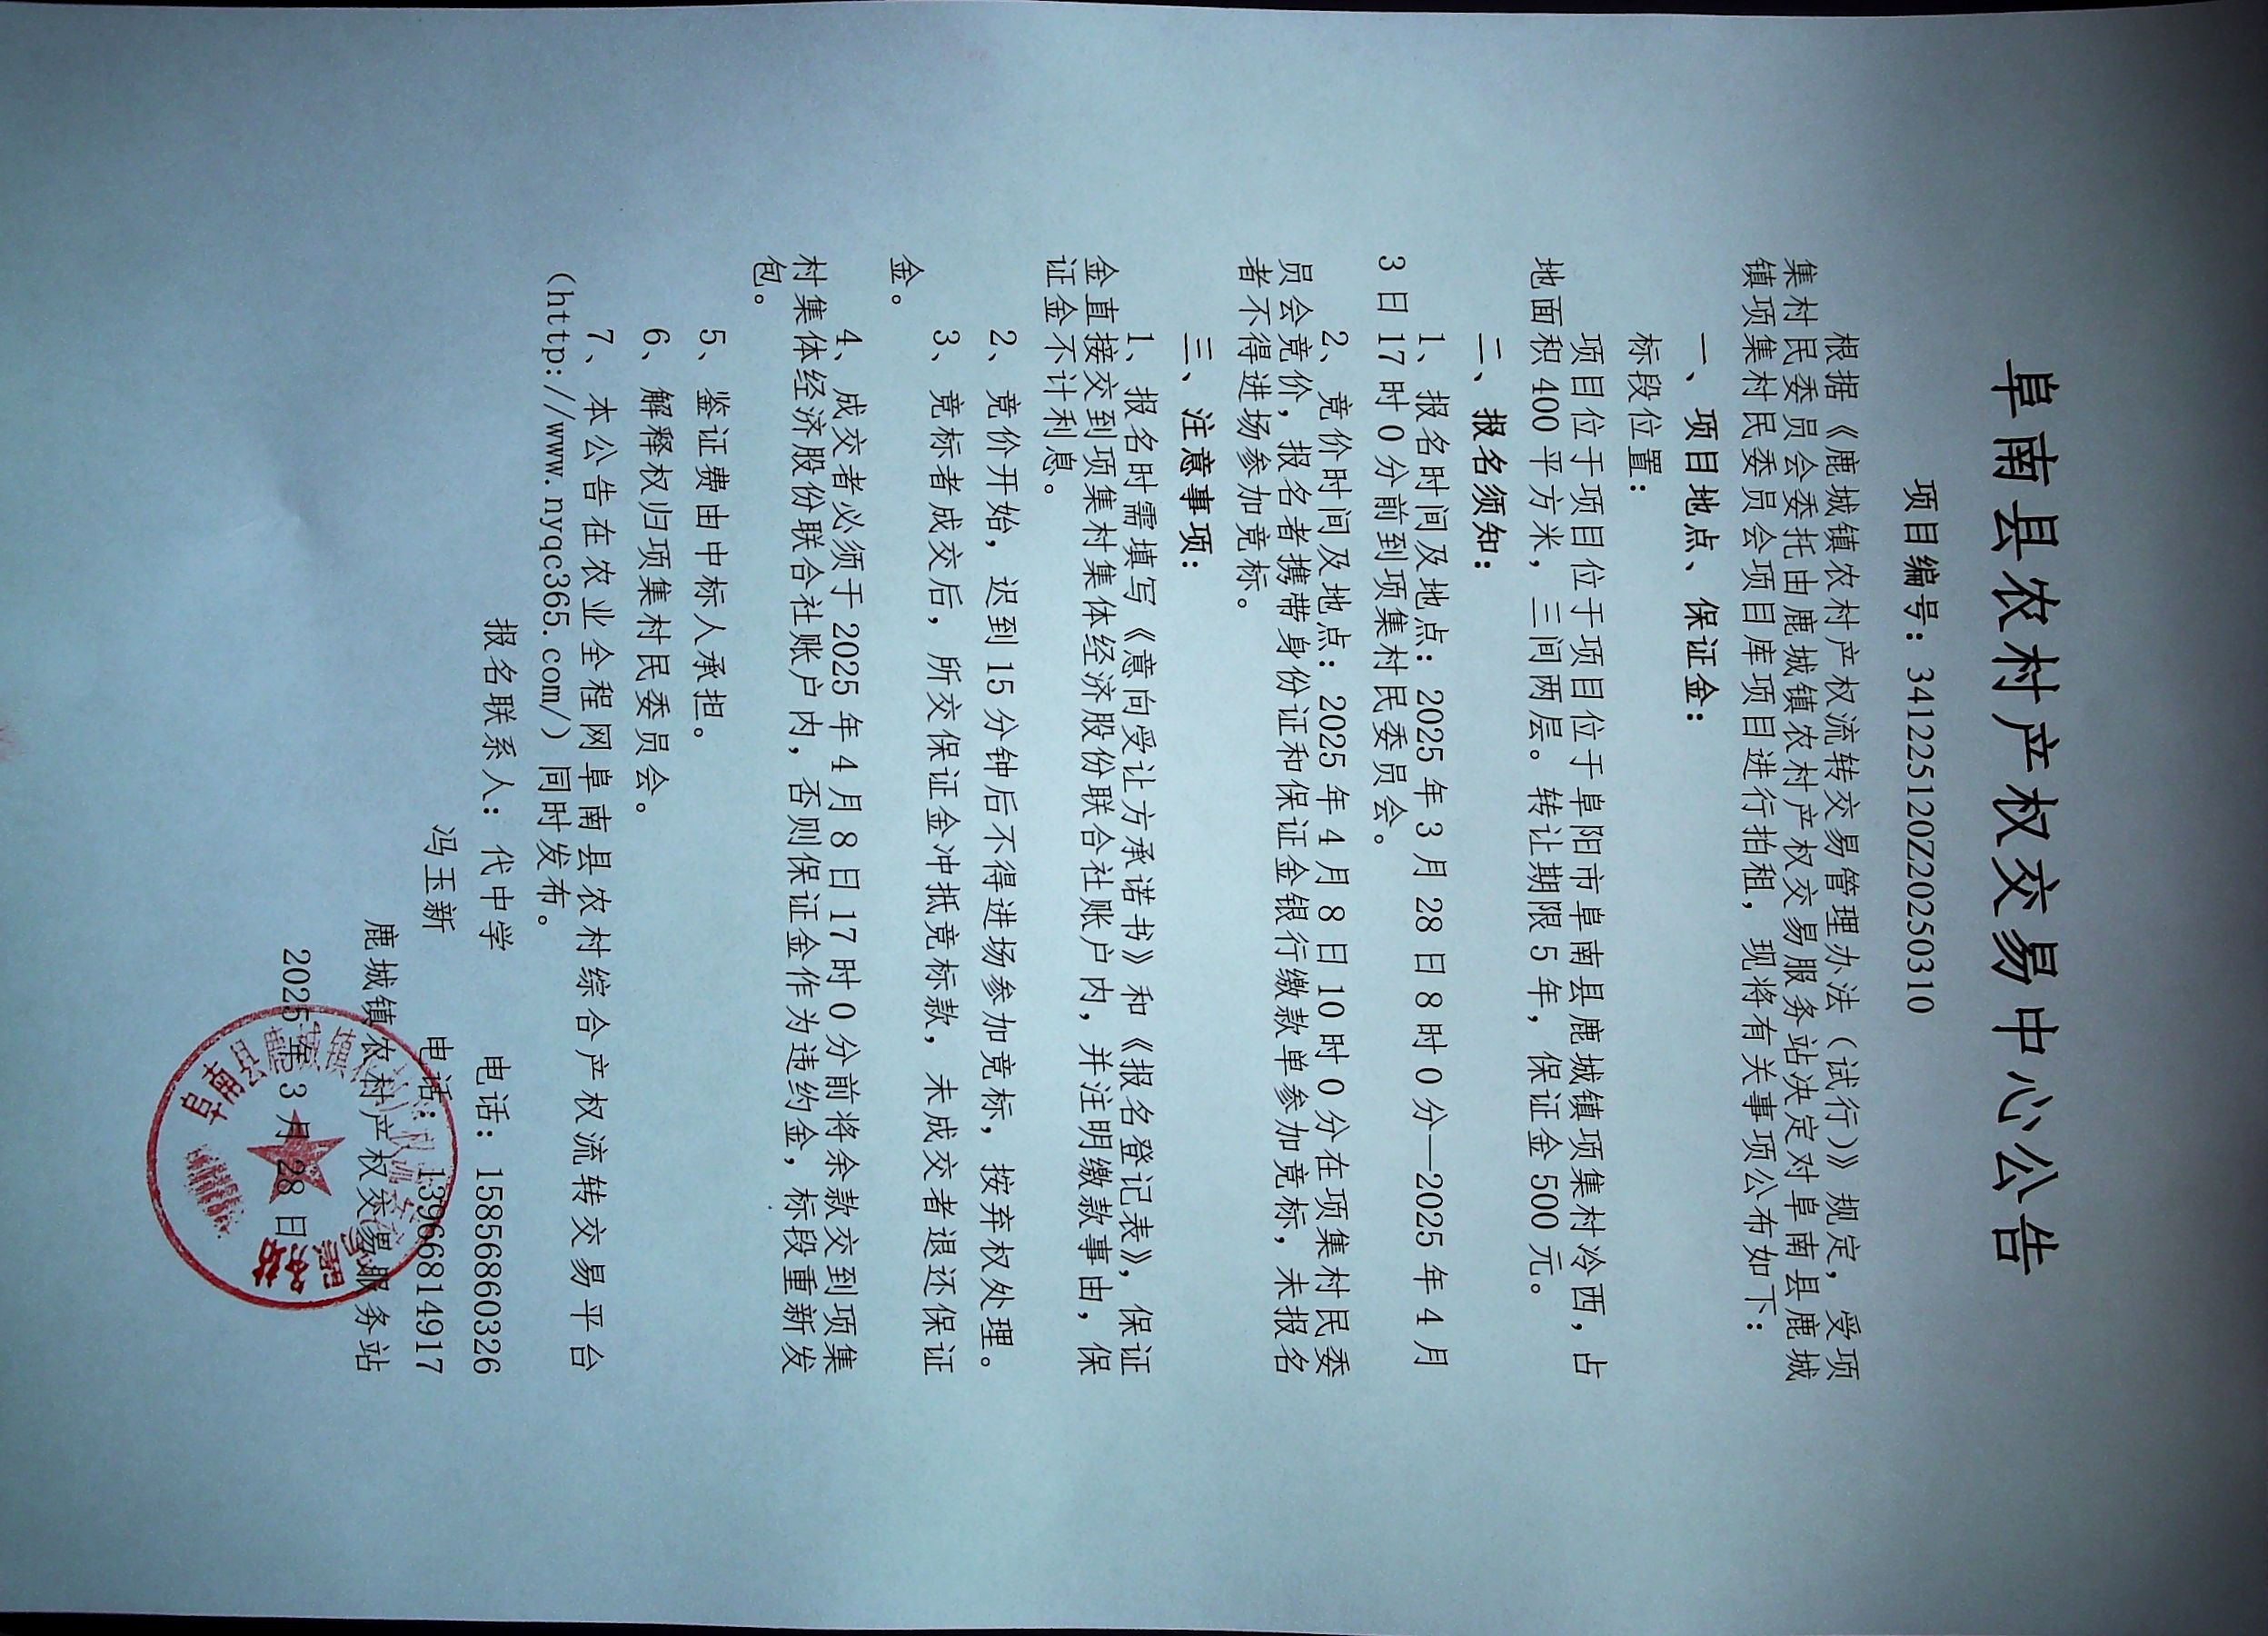 阜南县农村产权交易中心公告
项目编号：341225120Z20250310
根据《鹿城镇农村产权流转交易管理办法（试行）》规定，受项
集村民委员会委托由鹿城镇农村产权交易服务站决定对阜南县鹿城
镇项集村民委员会项目库项目进行拍租，现将有关事项公布如下：
一、项目地点、保证金：
标段位置：
项目位于项目位于项目位于阜阳市阜南县鹿城镇项集村冷西，占
地面积400平方米，三间两层。转让期限5年，保证金500元。
二、报名须知：
1、报名时间及地点：2025年3月28日8时0分—2025年4月
3日17时0分前到项集村民委员会。
2、竞价时间及地点：2025年4月8日10时0分在项集村民委
员会竞价，报名者携带身份证和保证金银行缴款单参加竞标，未报名
者不得进场参加竞标。
三、注意事项：
1、报名时需填写《意向受让方承诺书》和《报名登记表》，保证
金直接交到项集村集体经济股份联合社账户内，并注明缴款事由，保
证金不计利息。
2、竞价开始，迟到15分钟后不得进场参加竞标，按弃权处理。
3、竞标者成交后，所交保证金冲抵竞标款，未成交者退还保证
金。
4、成交者必须于2025年4月8日17时0分前将余款交到项集
村集体经济股份联合社账户内，否则保证金作为违约金，标段重新发
包。
5、鉴证费由中标人承担。
6、解释权归项集村民委员会。
7、本公告在农业全程网阜南县农村综合产权流转交易平台
（http://www.nyqc365.com/）同时发布。
报名联系人：代中学 电话：15856860326
冯玉新 电话：13966814917
鹿城镇农村产权交易服务站
2025年3月28日
阜南县